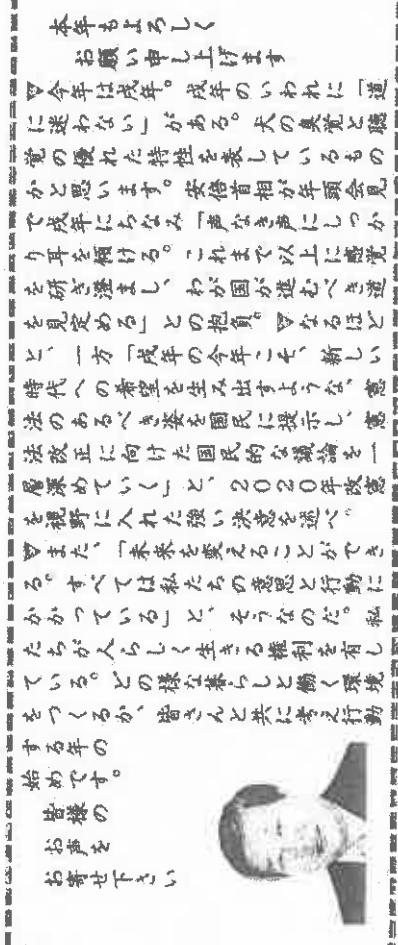 本年もよろしく
お願い申し上げます
▽今年は戌年。戌年のいわれに「道
に迷わない」がある。犬の臭覚と聴
覚の優れた特性を表しているもの
かと思います。安倍首相が年頭会見
で戌年にちなみ「声なき声にしっか
り耳を傾ける。これまで以上に感覚
を研ぎ澄まし、わが国が進むべき道
を見定める」との抱負。▽なるほど
と、一方「戌年の今年こそ、新しい
時代への希望を生み出すような、憲
法のあるべき姿を国民に提示し、憲
法改正に向けた国民的な議論を一
層深めていく」と、2020年改憲
を視野に入れた強い決意を述べ
▽また、「未来を変えることができ
る。すべては私たちの意思と行動に
かかっている」と、そうなのだ。私
たちが人らしく生きる権利を有し
ている。どの様な暮らしと働く環境
をつくるか、皆さんと共に考え行動
する年の
始めです。
皆様の
お声を
お寄せ下さい